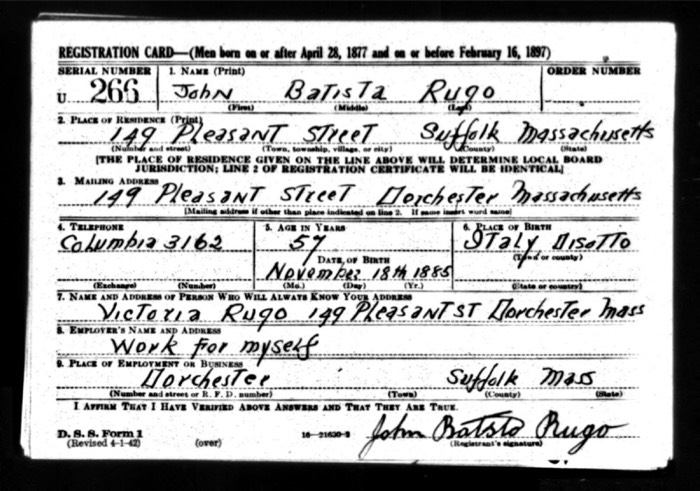 REGISTRATION CARD—(Men born on or after April 28, 1877 and on or before February 16, 1897)
SERIAL NUMBER 1. NAME (Print) ORDER NUMBER
U 266 John Batista Rugo
(First) (Middle) (Last)
2. PLACE OF RESIDENCE (Print)
149 Pleasant Street Suffolk Massachusetts
(Number and street) (Town, township, village, or city) (County) (State)
[THE PLACE OF RESIDENCE GIVEN ON THE LINE ABOVE WILL DETERMINE LOCAL BOARD
JURISDICTION; LINE 2 OF REGISTRATION CERTIFICATE WILL BE IDENTICAL]
3. MAILING ADDRESS
149 Pleasant Street Dorchester Massachusetts
[Mailing address if other than place indicated on line 2. If same insert word same]
4. TELEPHONE 5. AGE IN YEARS 6. PLACE OF BIRTH
Columbia 3162 57 Italy Disotto
DATE OF BIRTH (Town or county)
November 18th 1885
(Exchange) (Number) (Mo.) (Day) (Yr.) (State or country)
7. NAME AND ADDRESS OF PERSON WHO WILL ALWAYS KNOW YOUR ADDRESS
Victoria Rugo 149 Pleasant ST Dorchester Mass
8. EMPLOYER'S NAME AND ADDRESS
Work for myself
9. PLACE OF EMPLOYMENT OR BUSINESS
Dorchester Suffolk Mass
(Number and street or R. F. D. number) (Town) (County) (State)
I AFFIRM THAT I HAVE VERIFIED ABOVE ANSWERS AND THAT THEY ARE TRUE.
D. S. S. Form 1
(Revised 4-1-42) (over) 16—21630-2 John Batsto Rugo
(Registrant's signature)